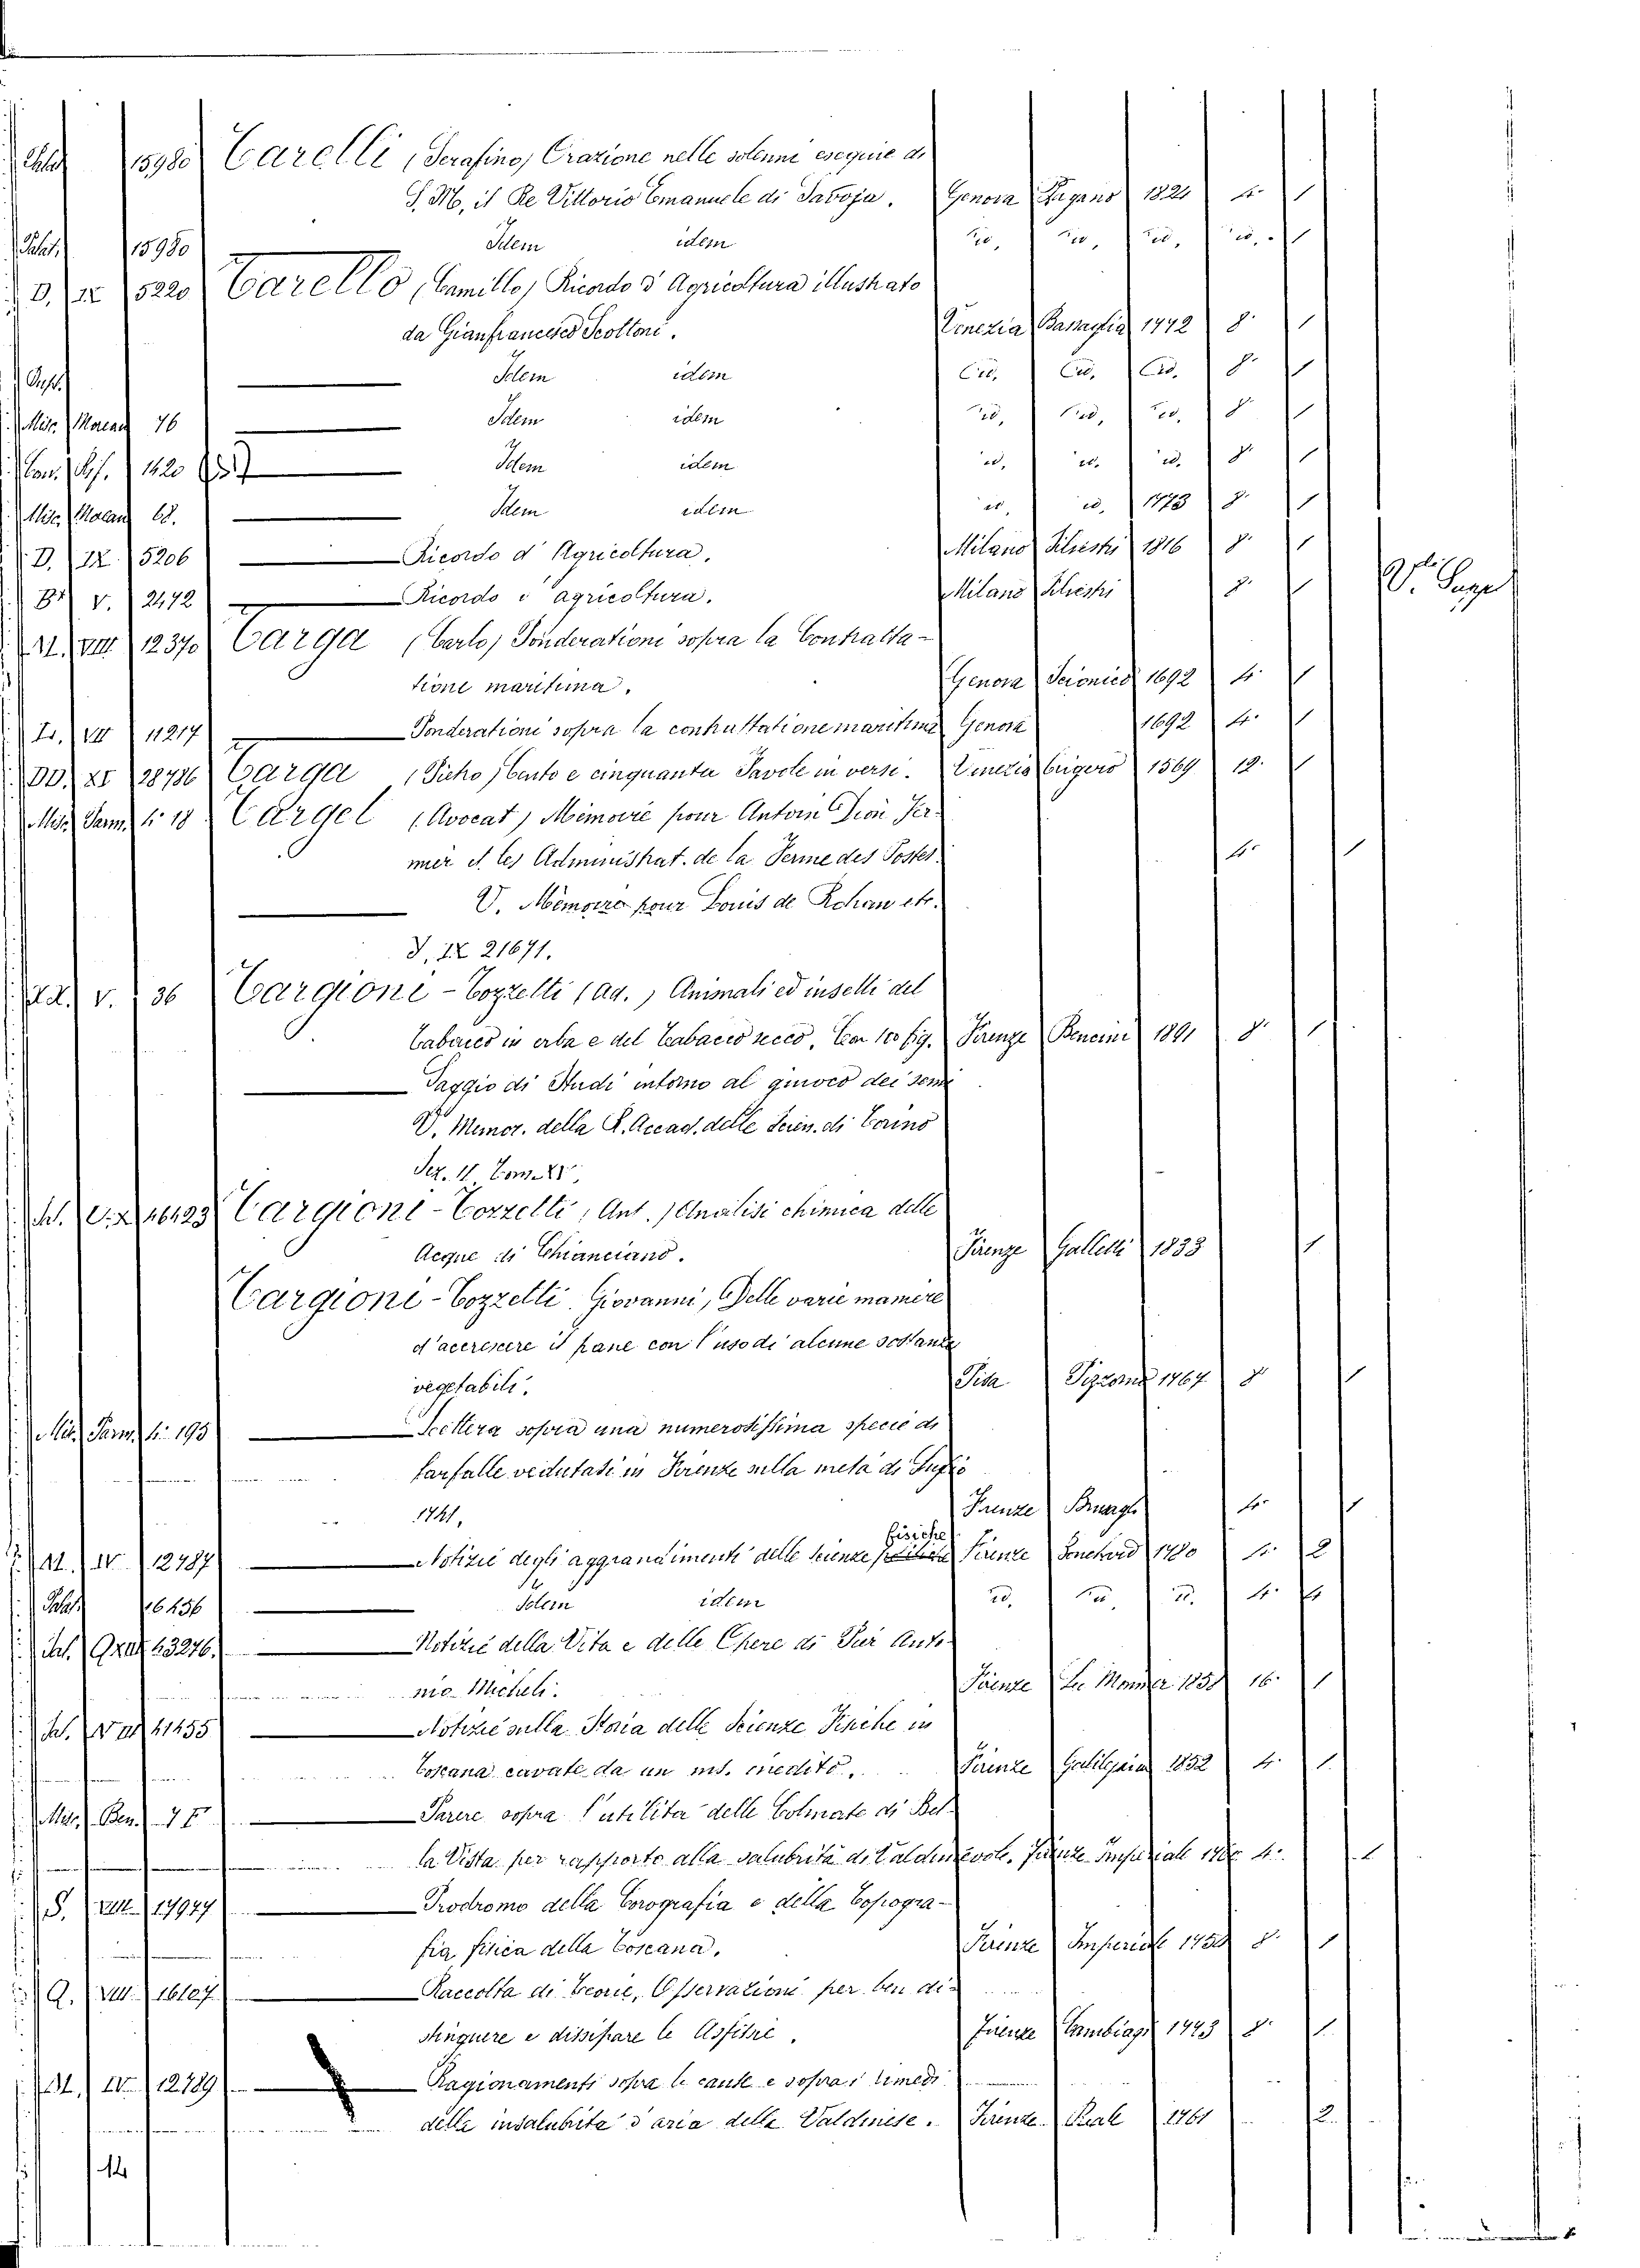 15980 Tarelli, Serafino, Orazione nelle solenni esequie di
S. M. il Re Vittorio Emanuele di Savoja. Genova Pagano 1824 4. 1
Palat. 15980 Idem idem id. id. id. id. 1
D. IX 5220 Tarello, Camillo, Ricordo d'Agricoltura illustrato
da Gianfrancesco Scottoni. Venezia Bassaglia 1772 8. 1
Idem idem id. id. id. 8. 1
Misc. Marcad 76 Idem idem id. id. id. 8. 1
1420 Idem idem id. id. id. 8. 1
Misc. 68. Idem idem id. id. 1773 8. 1
D. IX. 5206 Ricordo d'Agricoltura. Milano Silvestri 1816 8. 1
V. 2472 Ricordo d'agricoltura. Milano Silvestri 8. 1
VIII 12370 Targa (Carlo) Ponderationi sopra la Contratta-
tione maritima. Genova Scionico 1692 4. 1
VII 11217 Ponderationi sopra la contrattatione maritima Genova 1692 4. 1
DD. XI 28786 Targa (Pietro) Cento e cinquanta Favole in versi. Venezia 1569 12. 1
Misc. Parm. 4. 18 Target (Avocat) Mémoire pour Antoin Dion Fer-
mier et les Administrat. de la Ferme des Postes. 4. 1
V. Mémoire pour Louis de Rohan etc.
IX 21671.
V. 36 Targioni-Tozzetti (Ad.) Animali ed insetti del
Tabacco in erba e del Tabacco secco. Con 100 fig. Firenze Bencini 1891 8. 1
Saggio di Studi intorno al giuoco dei semi
V. Memor. della R. Accad. delle Scien. di Torino
Ser. II Tom. XV.
16123 Targioni-Tozzetti, Ant. Analisi chimica delle
Acque di Chianciano. Firenze Galletti 1833 1
Targioni-Tozzetti, Giovanni, Delle varie maniere
d'accrescere il pane con l'uso di alcune sostanze
vegetabili. Pisa Pizzorno 1767 8 1
Misc. Parm. 4. 195 Lettera sopra una numerosissima specie di
farfalle vedutasi in Firenze sulla metà di Luglio
1741. Firenze 4. 1
IV 12787 Notizie degli aggrandimenti delle Scienze fisiche Firenze Bouchard 1780 4. 2
Palat. 16456 Idem idem id. id. id. 4. 4
43276. Notizie della Vita e delle Opere di Pier Anto-
nio Micheli. Firenze Le Monnier 1858 16. 1
41455 Notizie sulla Storia delle Scienze Fisiche in
Toscana cavate da un ms. inedito. Firenze Galilejana 1852 4. 1
Ben. Parere sopra l'utilità delle Colmate di Bel-
la Vista per rapporto alla salubrità di Valdinievole. Firenze Imperiale 1760 4. 1
S. VIII 17977 Prodromo della Corografia e della Topogra-
fia fisica della Toscana. Firenze Imperiale 1754 8. 1
Q. VIII 16107 Raccolta di Teorie, Osservazioni per ben di-
stinguere e dissipare le Asfissie. Firenze Cambiagi 1773 8. 1
IV 12789 Ragionamenti sopra le cause e sopra i rimedi
delle insalubrità d'aria della Valdinievole. Firenze Real 1761 2.
V. Suppl.
14